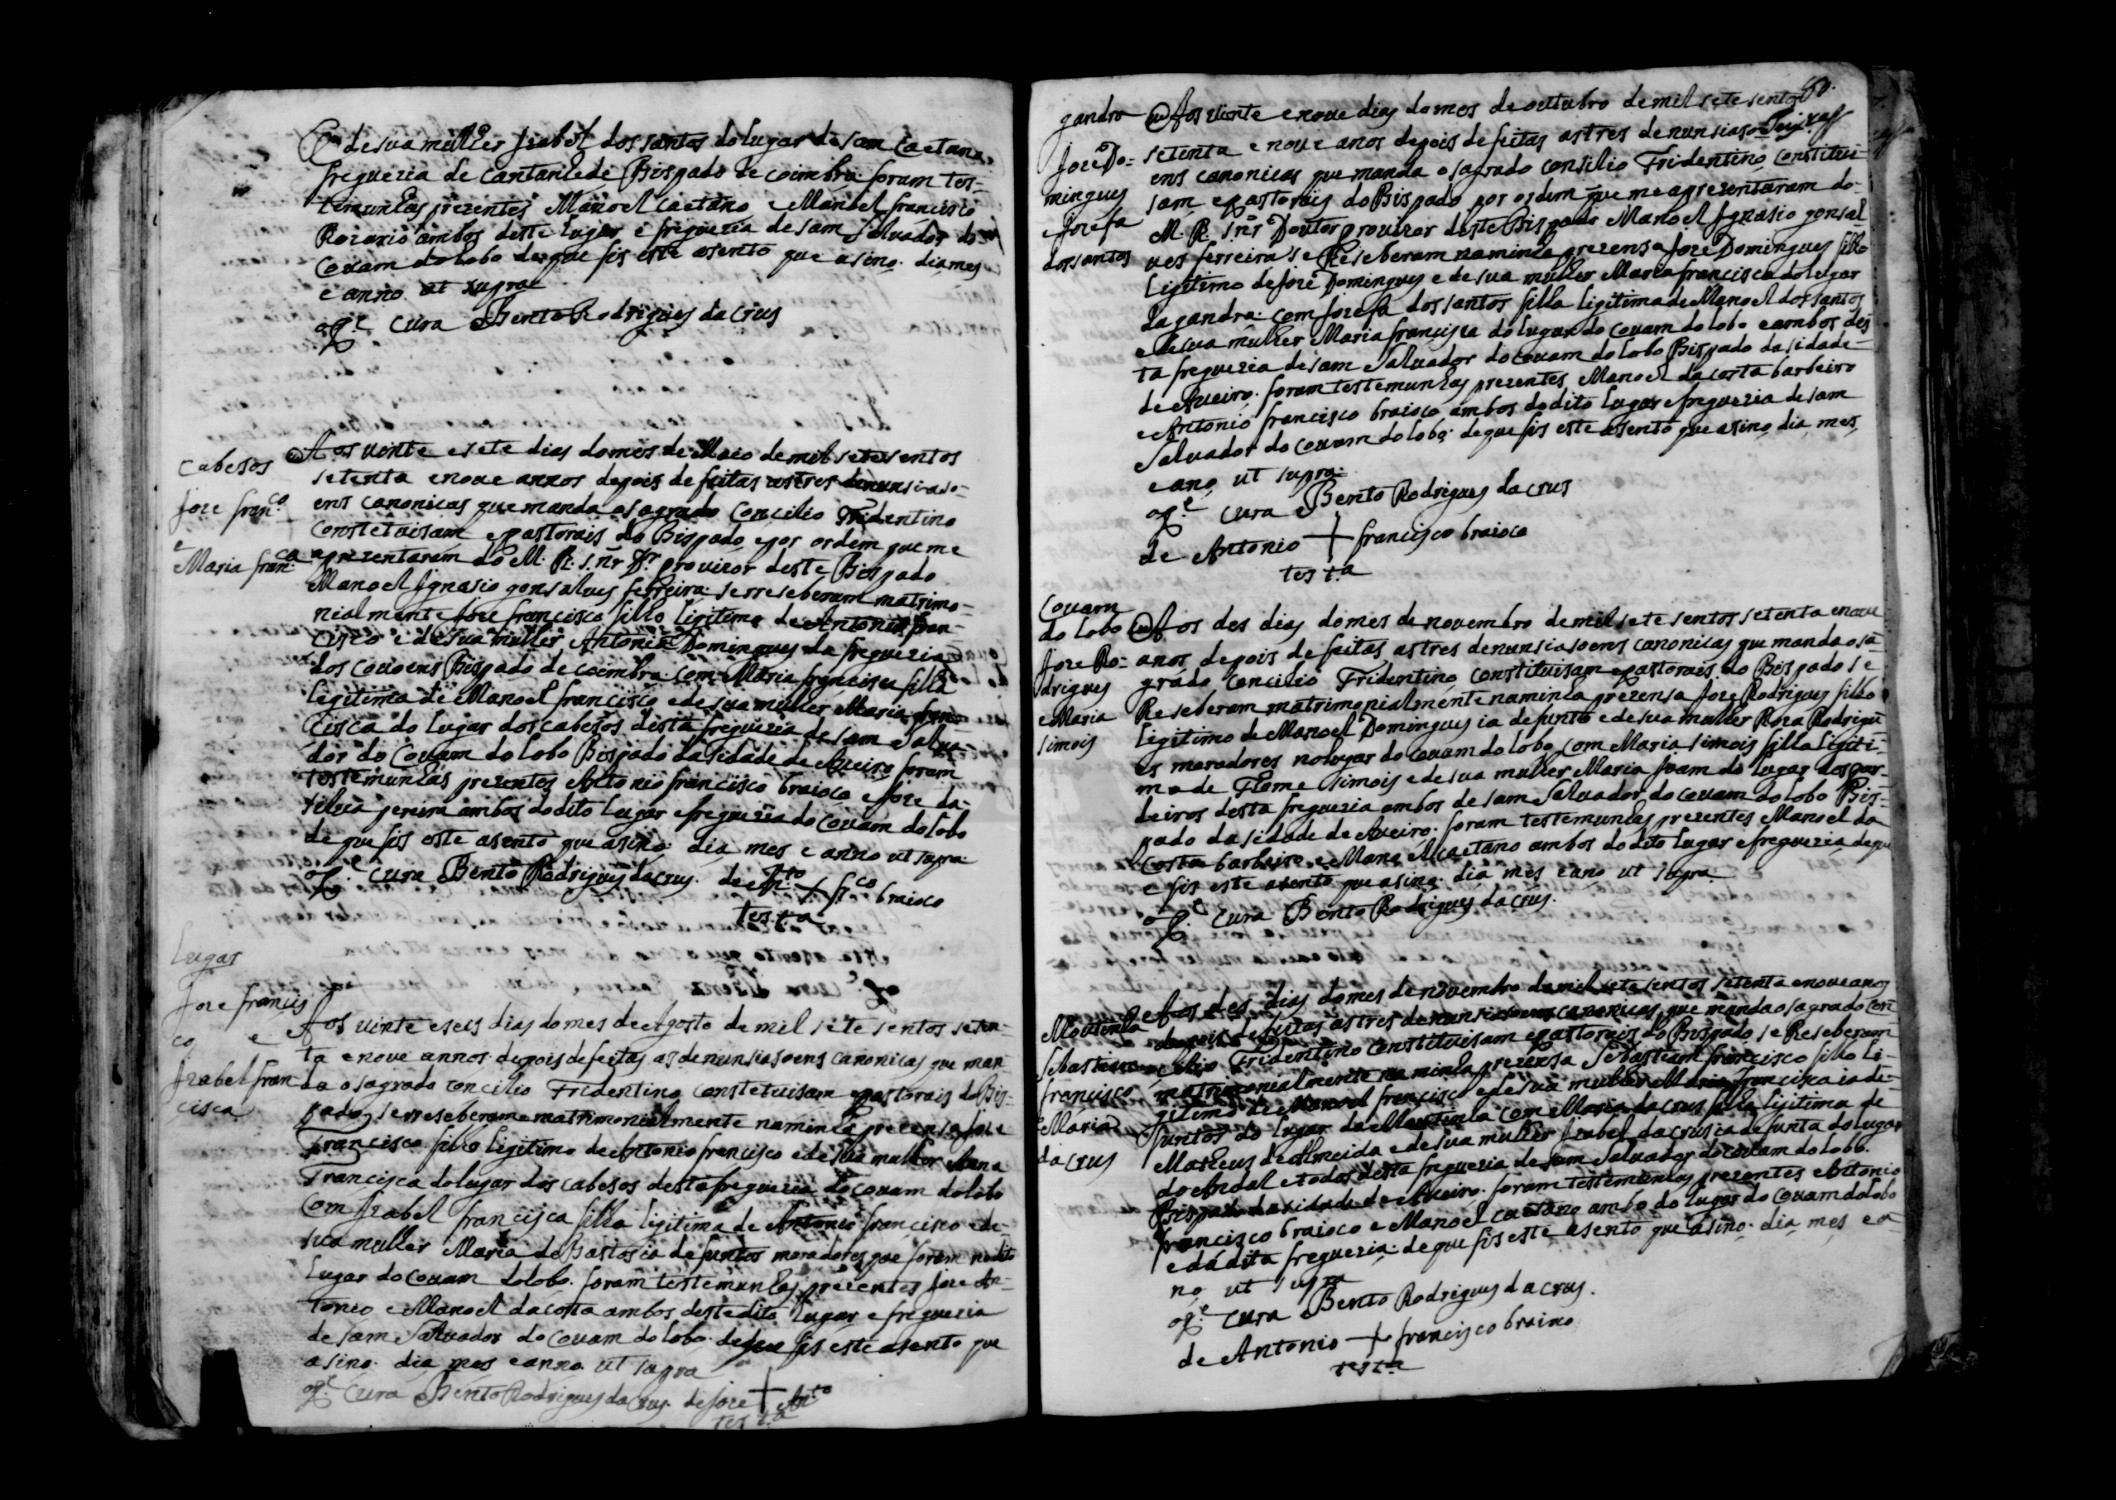 e de sua mulher Izabel dos santos do lugar de sam Caetano
freguezia de Cantanhede Bispado de coimbra foram tes-
temunhas prezentes Manoel Caetano e Manoel francisco
Rozario ambos deste lugar e freguezia de sam Salvador do
Couam do lobo de que fis este asento que asino dia mes
e anno ut supra
o P.e Cura Bento Rodrigues da crus
Cabesos
Joze fran.co
e
Maria fran.ca
Aos vinte e sete dias do mes de Maio de mil setesentos
setenta e noue annos depois de feitas as tres denunsiaso-
ens canonicas que manda o sagrado Concilio Tridentino
Constetuisam e pastorais do Bispado e por ordem que me
aprezentaram do M. R. S.nr D.r prouizor deste Bispado
Manoel Ignasio gonsalues ferreira se rreseberam matrimo-
nialmente Joze francisco filho legitimo de Antonio fran-
cisco e de sua mulher Antonia Domingues da freguezia
dos couoens Bispado de coimbra com Maria francisca filha
legitima de Manoel francisco e de sua mulher Maria fran-
cisca do lugar dos cabesos desta freguezia de sam Salua-
dor do Couam do lobo Bispado da sidade de Aueiro foram
testemunhas prezentes Antonio francisco braioco e Joze da
silua pereira ambos do dito lugar e freguezia do Couam do lobo
de que fis este asento que asino dia mes e anno ut supra
o P.e Cura Bento Rodrigues da crus. de An.to + fr.co braioco
test.a
Lugar
Joze francis
co e
Izabel fran
cisca
Aos vinte e seis dias do mes de Agosto de mil sete sentos seten-
ta e noue annos depois de feitas as denunsiasoens canonicas que man-
da o sagrado concilio Tridentino constetuisam e pastorais do Bis-
pado se rreseberam matrimonialmente na minha prezensa Joze
Francisco filho legitimo de Antonio francisco e de sua mulher Anna
Francisca do lugar dos cabesos desta freguezia do couam do lobo
Com Izabel francisca filha ligitima de Antonio francisco e de
sua mulher Maria de Bastos ia defuntos moradores que foram no dito
Lugar do couam do lobo. foram testemunhas prezentes Joze An-
tonio e Manoel da costa ambos deste dito lugar e freguezia
de sam Saluador do couam do lobo de que fis este asento que
asino dia mes e anno ut supra
o P.e Cura Bento Rodrigues da Crus. de Joze + An.to
test.a
60.
gandra
Joze Do-
mingues
e Jozefa
dos santos
Aos vinte e noue dias do mes de outubro de mil sete sentos
setenta e noue anos depois de feitas as tres denunsiaso
ens canonicas que manda o sagrado consilio Tridentino constitui-
sam e pastorais do Bispado por ordem que me aprezentaram do
M. R. S.nr Doutor prouizor deste Bispado Manoel Ignasio gonsal
ues ferreira se Reseberam na minha prezensa Joze Domingues filho
legitimo de Joze Domingues e de sua mulher Maria francisca do lugar
da gandra com Jozefa dos santos filha ligitima de Manoel dos santos
e de sua mulher Maria francisca do lugar do couam do lobo e ambos des
ta freguezia de sam Saluador do couam do lobo Bispado da sidade
de Aueiro. foram testemunhas prezentes Manoel da costa barbeiro
e Antonio francisco braioco ambos do dito lugar e freguezia de sam
Saluador do couam do lobo. de que fis este asento que asino dia mes
e ano ut supra
o P.e Cura Bento Rodrigues da crus
de Antonio + francisco braioco
test.a
Couam
do lobo
Joze Ro-
drigues
e Maria
simois
Aos des dias do mes de nouembro de mil sete sentos setenta e noue
anos depois de feitas as tres denunsiasoens canonicas que manda o sa
grado Concilio Tridentino constituisam e pastorais do Bispado se
Reseberam matrimonialmente na minha prezensa Joze Rodrigues filho
ligitimo de Manoel Domingues ia defunto e de sua mulher Roza Rodrigu
es moradores no lugar do couam do lobo com Maria simois filha ligiti-
ma de Thome simois e de sua mulher Maria Joam do lugar dos par-
deiros desta freguezia ambos de sam Saluador do couam do lobo Bis-
pado da sidade de Aueiro. foram testemunhas prezentes Manoel da
Costa barbeiro e Manoel Caetano ambos do dito lugar e freguezia de qu
e fis este asento que asino dia mes e ano ut supra
o P.e Cura Bento Rodrigues da crus.
Moutinha
Sebastiam
francisco
e Maria
da crus
Aos des dias do mes de nouembro de mil sete sentos setenta e noue anos
depois de feitas as tres denunsiasoens canonicas que manda o sagrado con
cilio Tridentino constituisam e pastorais do Bispado se Reseberam
matrimonialmente na minha prezensa Sebastiam francisco filho li-
gitimo de Manoel francisco e de sua mulher Maria francisca ia de-
funtos do lugar da Moutinha com Maria da crus filha ligitima de
Mateus de Almeida e de sua mulher Izabel da crus ia defunta do lugar
do Andal e todos desta freguezia de sam Saluador do couam do lobo.
Bispado da sidade de Aueiro. foram testemunhas prezentes Antonio
francisco braioco e Manoel caetano ambo do lugar do couam do lobo
e da dita freguezia de que fis este asento que asino dia mes e a
no ut supra
o P.e Cura Bento Rodrigues da crus.
de Antonio + francisco braioco
test.a